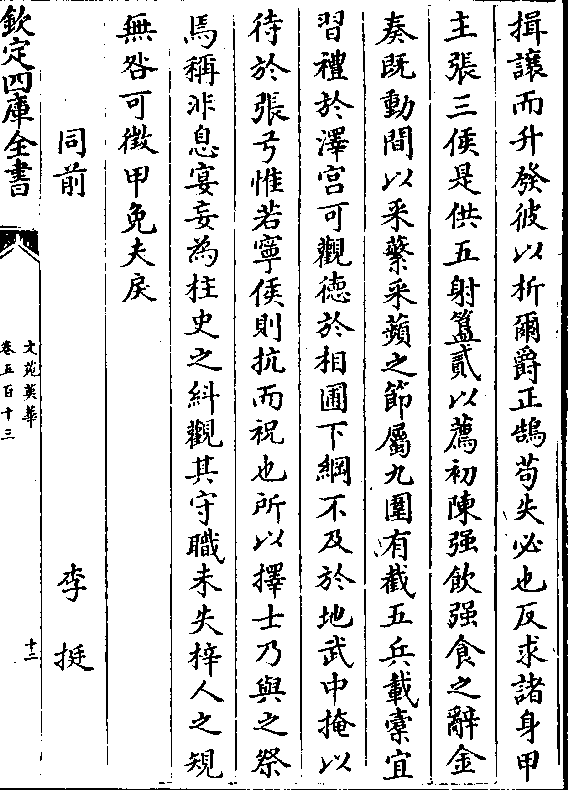 揖讓而升發彼以析爾爵正鵠苟失必也反求諸身甲
主張三侯是供五射簋貳以薦初陳强飲强食之辭金
奏既動間以采蘩采蘋之節屬九圍有截五兵載櫜宜
習禮於澤宫可觀徳於相圃下綱不及於地武中掩以
待於張弓惟若寧侯則抗而祝也所以擇士乃與之祭
焉稱非息宴妄為柱史之糾觀其守職未失梓人之規
無咎可徴甲免夫戾
同前 李挺
欽定四庫全書
文苑英華
卷五百十三
十二